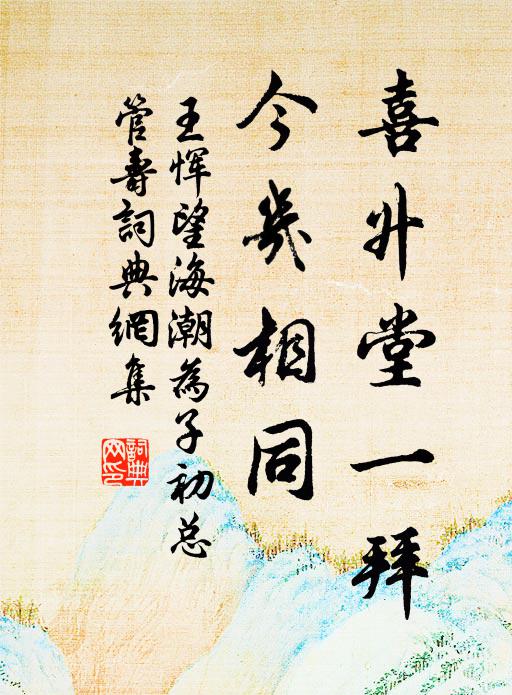 喜升堂一拜
今幾相同
王惲望海潮為子初总
管壽詞典網集
詞典
网印